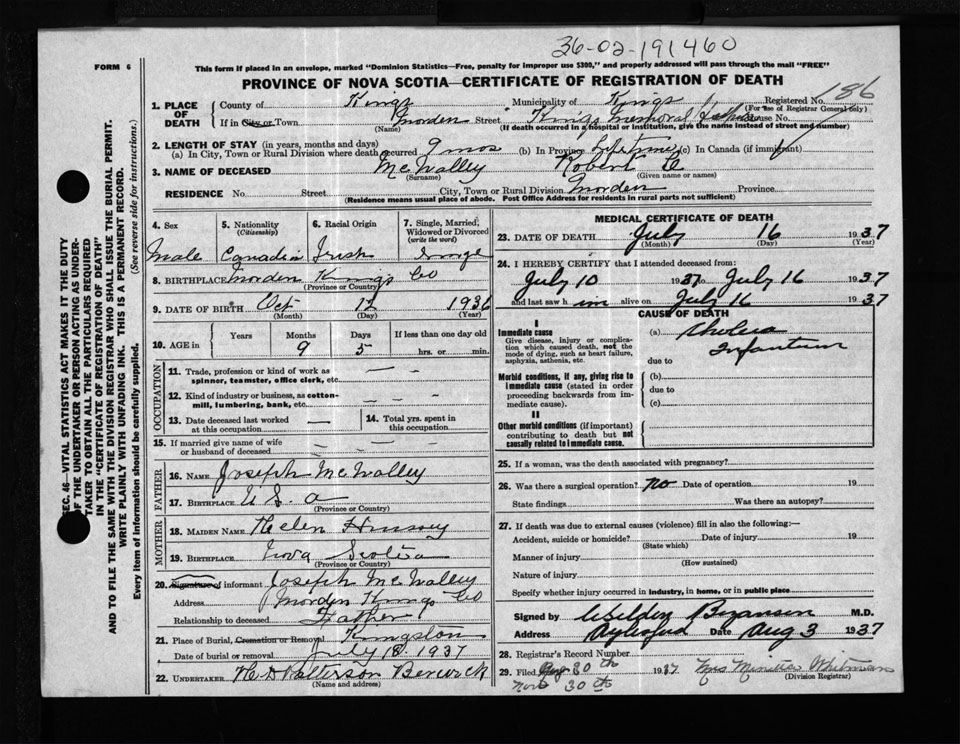 36-02-191460
FORM 6
This form if placed in an envelope, marked "Dominion Statistics—Free, penalty for improper use $300," and properly addressed will pass through the mail "FREE"
PROVINCE OF NOVA SCOTIA—CERTIFICATE OF REGISTRATION OF DEATH
186
SEC. 46—VITAL STATISTICS ACT MAKES IT THE DUTY
OF THE UNDERTAKER OR PERSON ACTING AS UNDER-
TAKER TO OBTAIN ALL THE PARTICULARS REQUIRED
IN THE "CERTIFICATE OF REGISTRATION OF DEATH"
AND TO FILE THE SAME WITH THE DIVISION REGISTRAR WHO SHALL ISSUE THE BURIAL PERMIT.
WRITE PLAINLY WITH UNFADING INK. THIS IS A PERMANENT RECORD.
Every item of information should be carefully supplied. (See reverse side for instructions.)
1. PLACE OF DEATH
County of Kings Municipality of Kings Registered No.
(For use of Registrar General only)
If in City or Town Morden Street Kings Memorial House No.
(Name) (If death occurred in a hospital or institution, give the name instead of street and number)
2. LENGTH OF STAY (in years, months and days)
(a) In City, Town or Rural Division where death occurred 9 mos (b) In Province Lifetime (c) In Canada (if immigrant)
3. NAME OF DECEASED McNalley Robert C
(Surname) (Given name or names)
RESIDENCE No. Street City, Town or Rural Division Morden Province
(Residence means usual place of abode. Post Office Address for residents in rural parts not sufficient)
4. Sex 5. Nationality (Citizenship) 6. Racial Origin 7. Single, Married, Widowed or Divorced (write the word)
Male Canadian Irish Single
8. BIRTHPLACE Morden Kings Co
(Province or Country)
9. DATE OF BIRTH Oct 12 1936
(Month) (Day) (Year)
10. AGE in Years Months Days If less than one day old
9 5 hrs. or min.
OCCUPATION
11. Trade, profession or kind of work as spinner, teamster, office clerk, etc. — —
12. Kind of industry or business, as cotton-mill, lumbering, bank, etc. — —
13. Date deceased last worked at this occupation —
14. Total yrs. spent in this occupation
15. If married give name of wife or husband of deceased — — —
FATHER
16. NAME Joseph McNalley
17. BIRTHPLACE U S A
MOTHER
18. MAIDEN NAME Helen Hussey
19. BIRTHPLACE Nova Scotia
(Province or Country)
20. Signature of informant Joseph McNalley
Address Morden Kings Co
Relationship to deceased Father
21. Place of Burial, Cremation or Removal Kingston
Date of burial or removal July 18, 1937
22. UNDERTAKER H D Patterson Berwick
(Name and address)
MEDICAL CERTIFICATE OF DEATH
23. DATE OF DEATH July 16 1937
(Month) (Day) (Year)
24. I HEREBY CERTIFY that I attended deceased from:
July 10 1937 to July 16 1937
and last saw him alive on July 16 1937
CAUSE OF DEATH
I
Immediate cause
Give disease, injury or complication which caused death, not the mode of dying, such as heart failure, asphyxia, asthenia, etc.
(a) Cholera
Infantum
due to
Morbid conditions, if any, giving rise to immediate cause (stated in order proceeding backwards from immediate cause).
(b)
due to
(c)
II
Other morbid conditions (if important) contributing to death but not causally related to immediate cause.
25. If a woman, was the death associated with pregnancy?
26. Was there a surgical operation? no Date of operation 19
State findings Was there an autopsy?
27. If death was due to external causes (violence) fill in also the following:—
Accident, suicide or homicide? Date of injury 19
(State which)
Manner of injury
(How sustained)
Nature of injury
Specify whether injury occurred in industry, in home, or in public place
Signed by Bezanson M.D.
Address Aylesford Date Aug 3 1937
28. Registrar's Record Number
29. Filed Aug 30th 1937 Mrs Whitman
Nov 30th (Division Registrar)